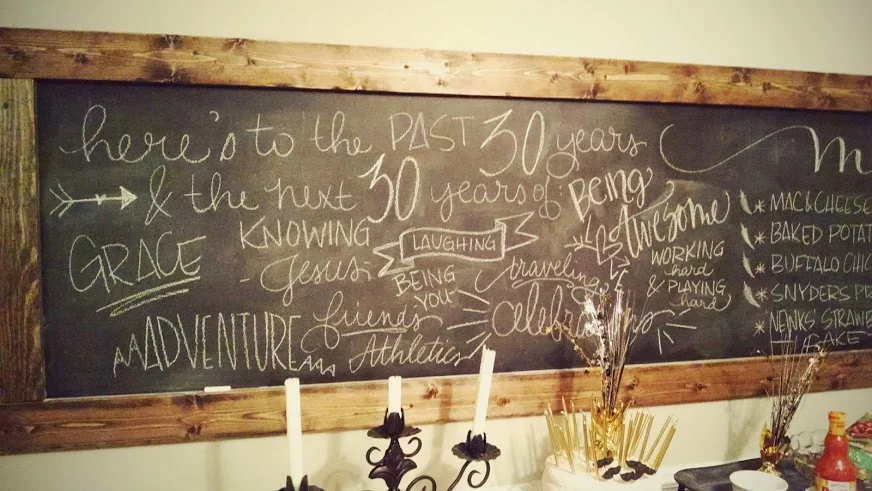 here's to the PAST 30 years
& the next 30 years of:
Being Awesome
GRACE
KNOWING
- Jesus
LAUGHING
BEING
YOU
traveling
WORKING
hard
& PLAYING
hard
ADVENTURE
friends
Athletics
celebrations
M
* MAC & CHEESE
* BAKED POTAT
* BUFFALO CHIC
* SNYDERS PR
* NENKS' STRAWB
BAKE